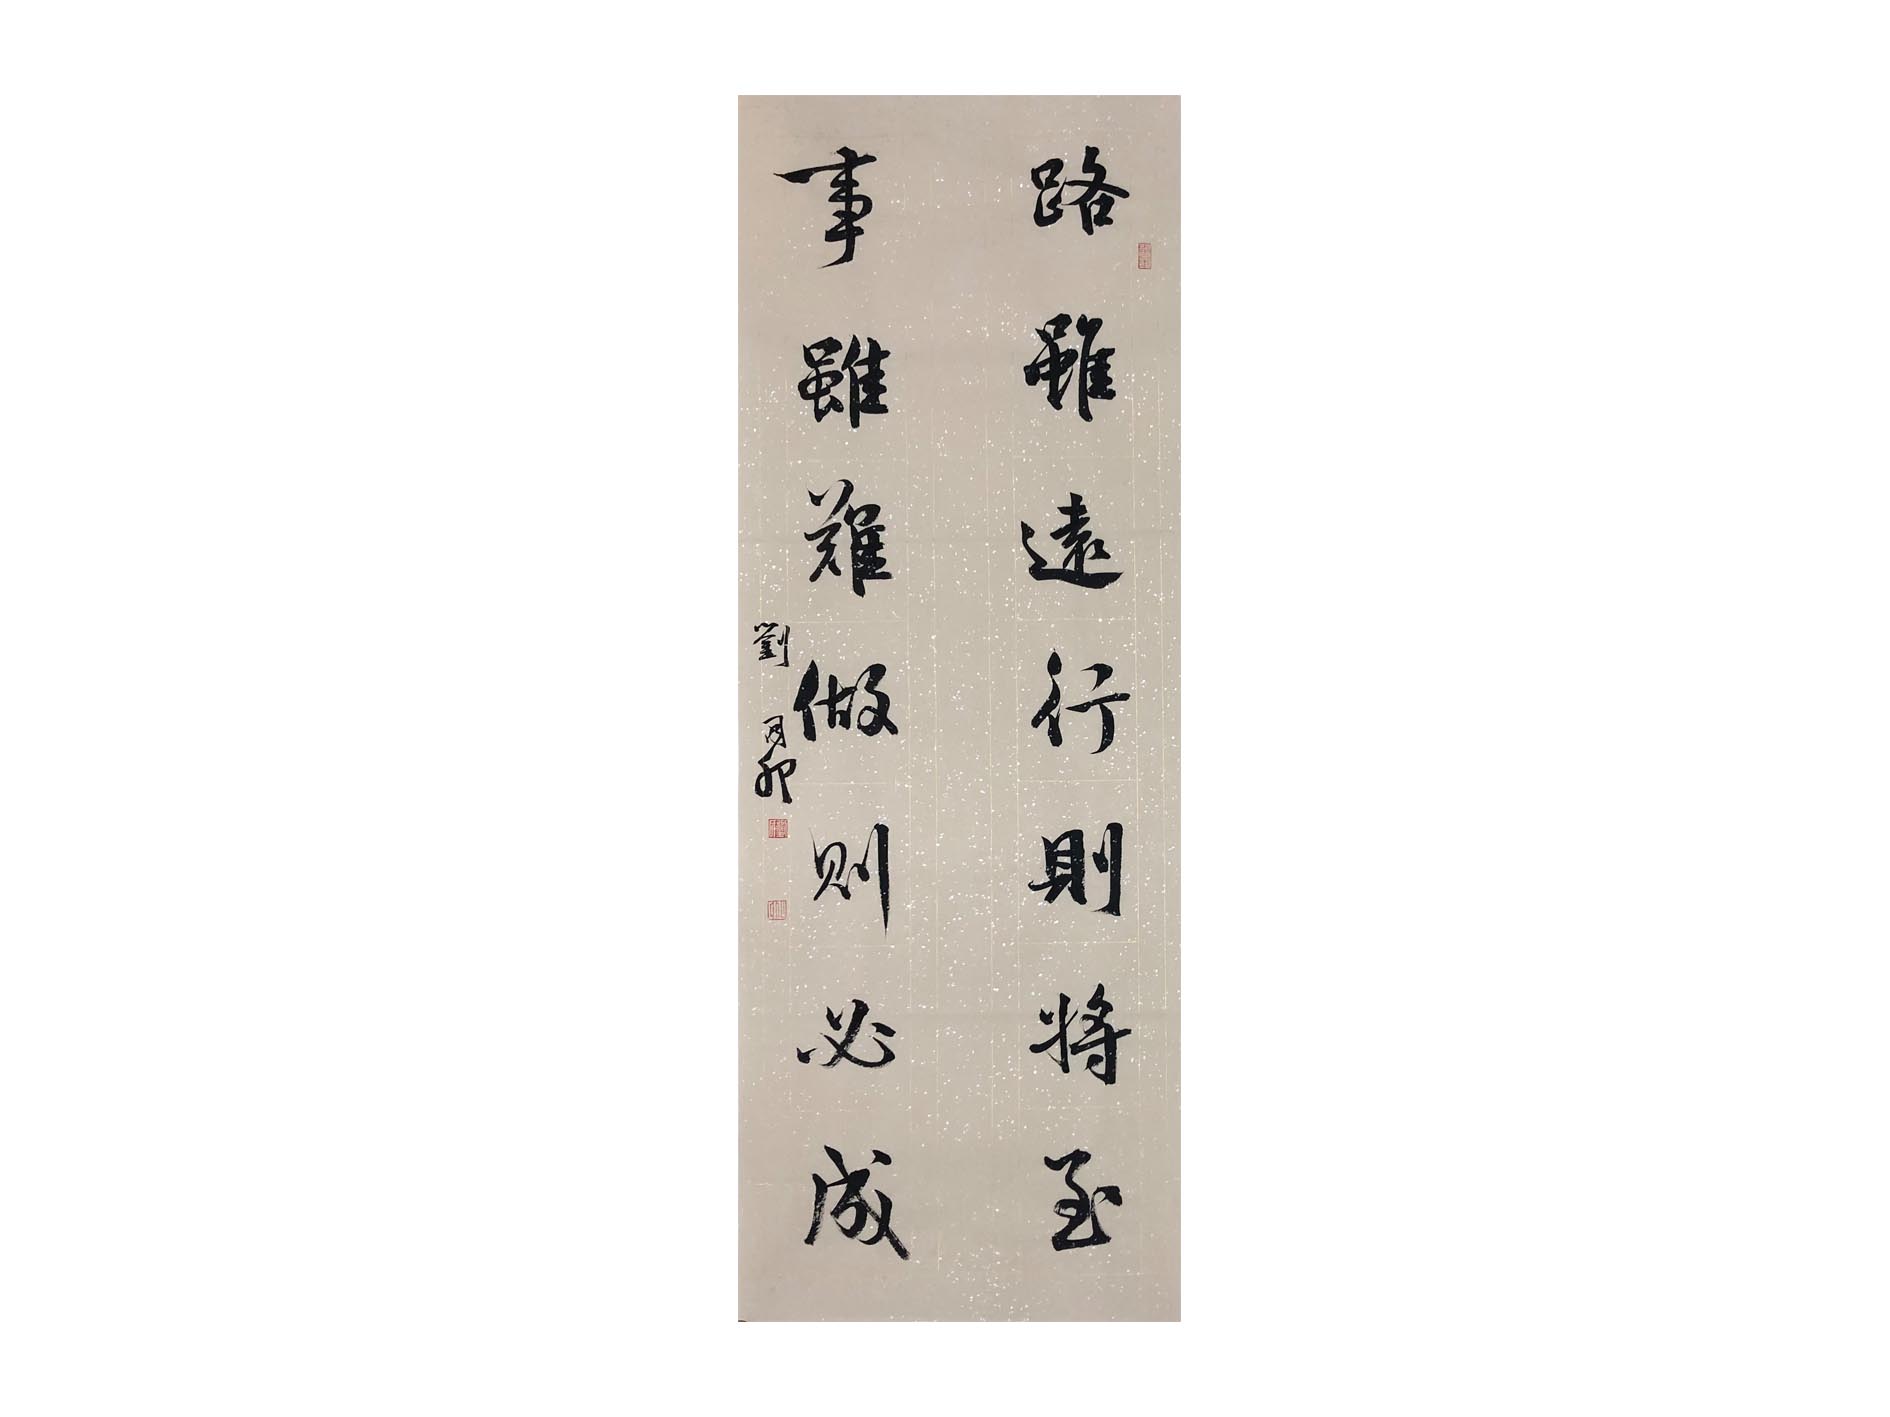 路雖遠行則將至
事雖難做则必成
劉月卯